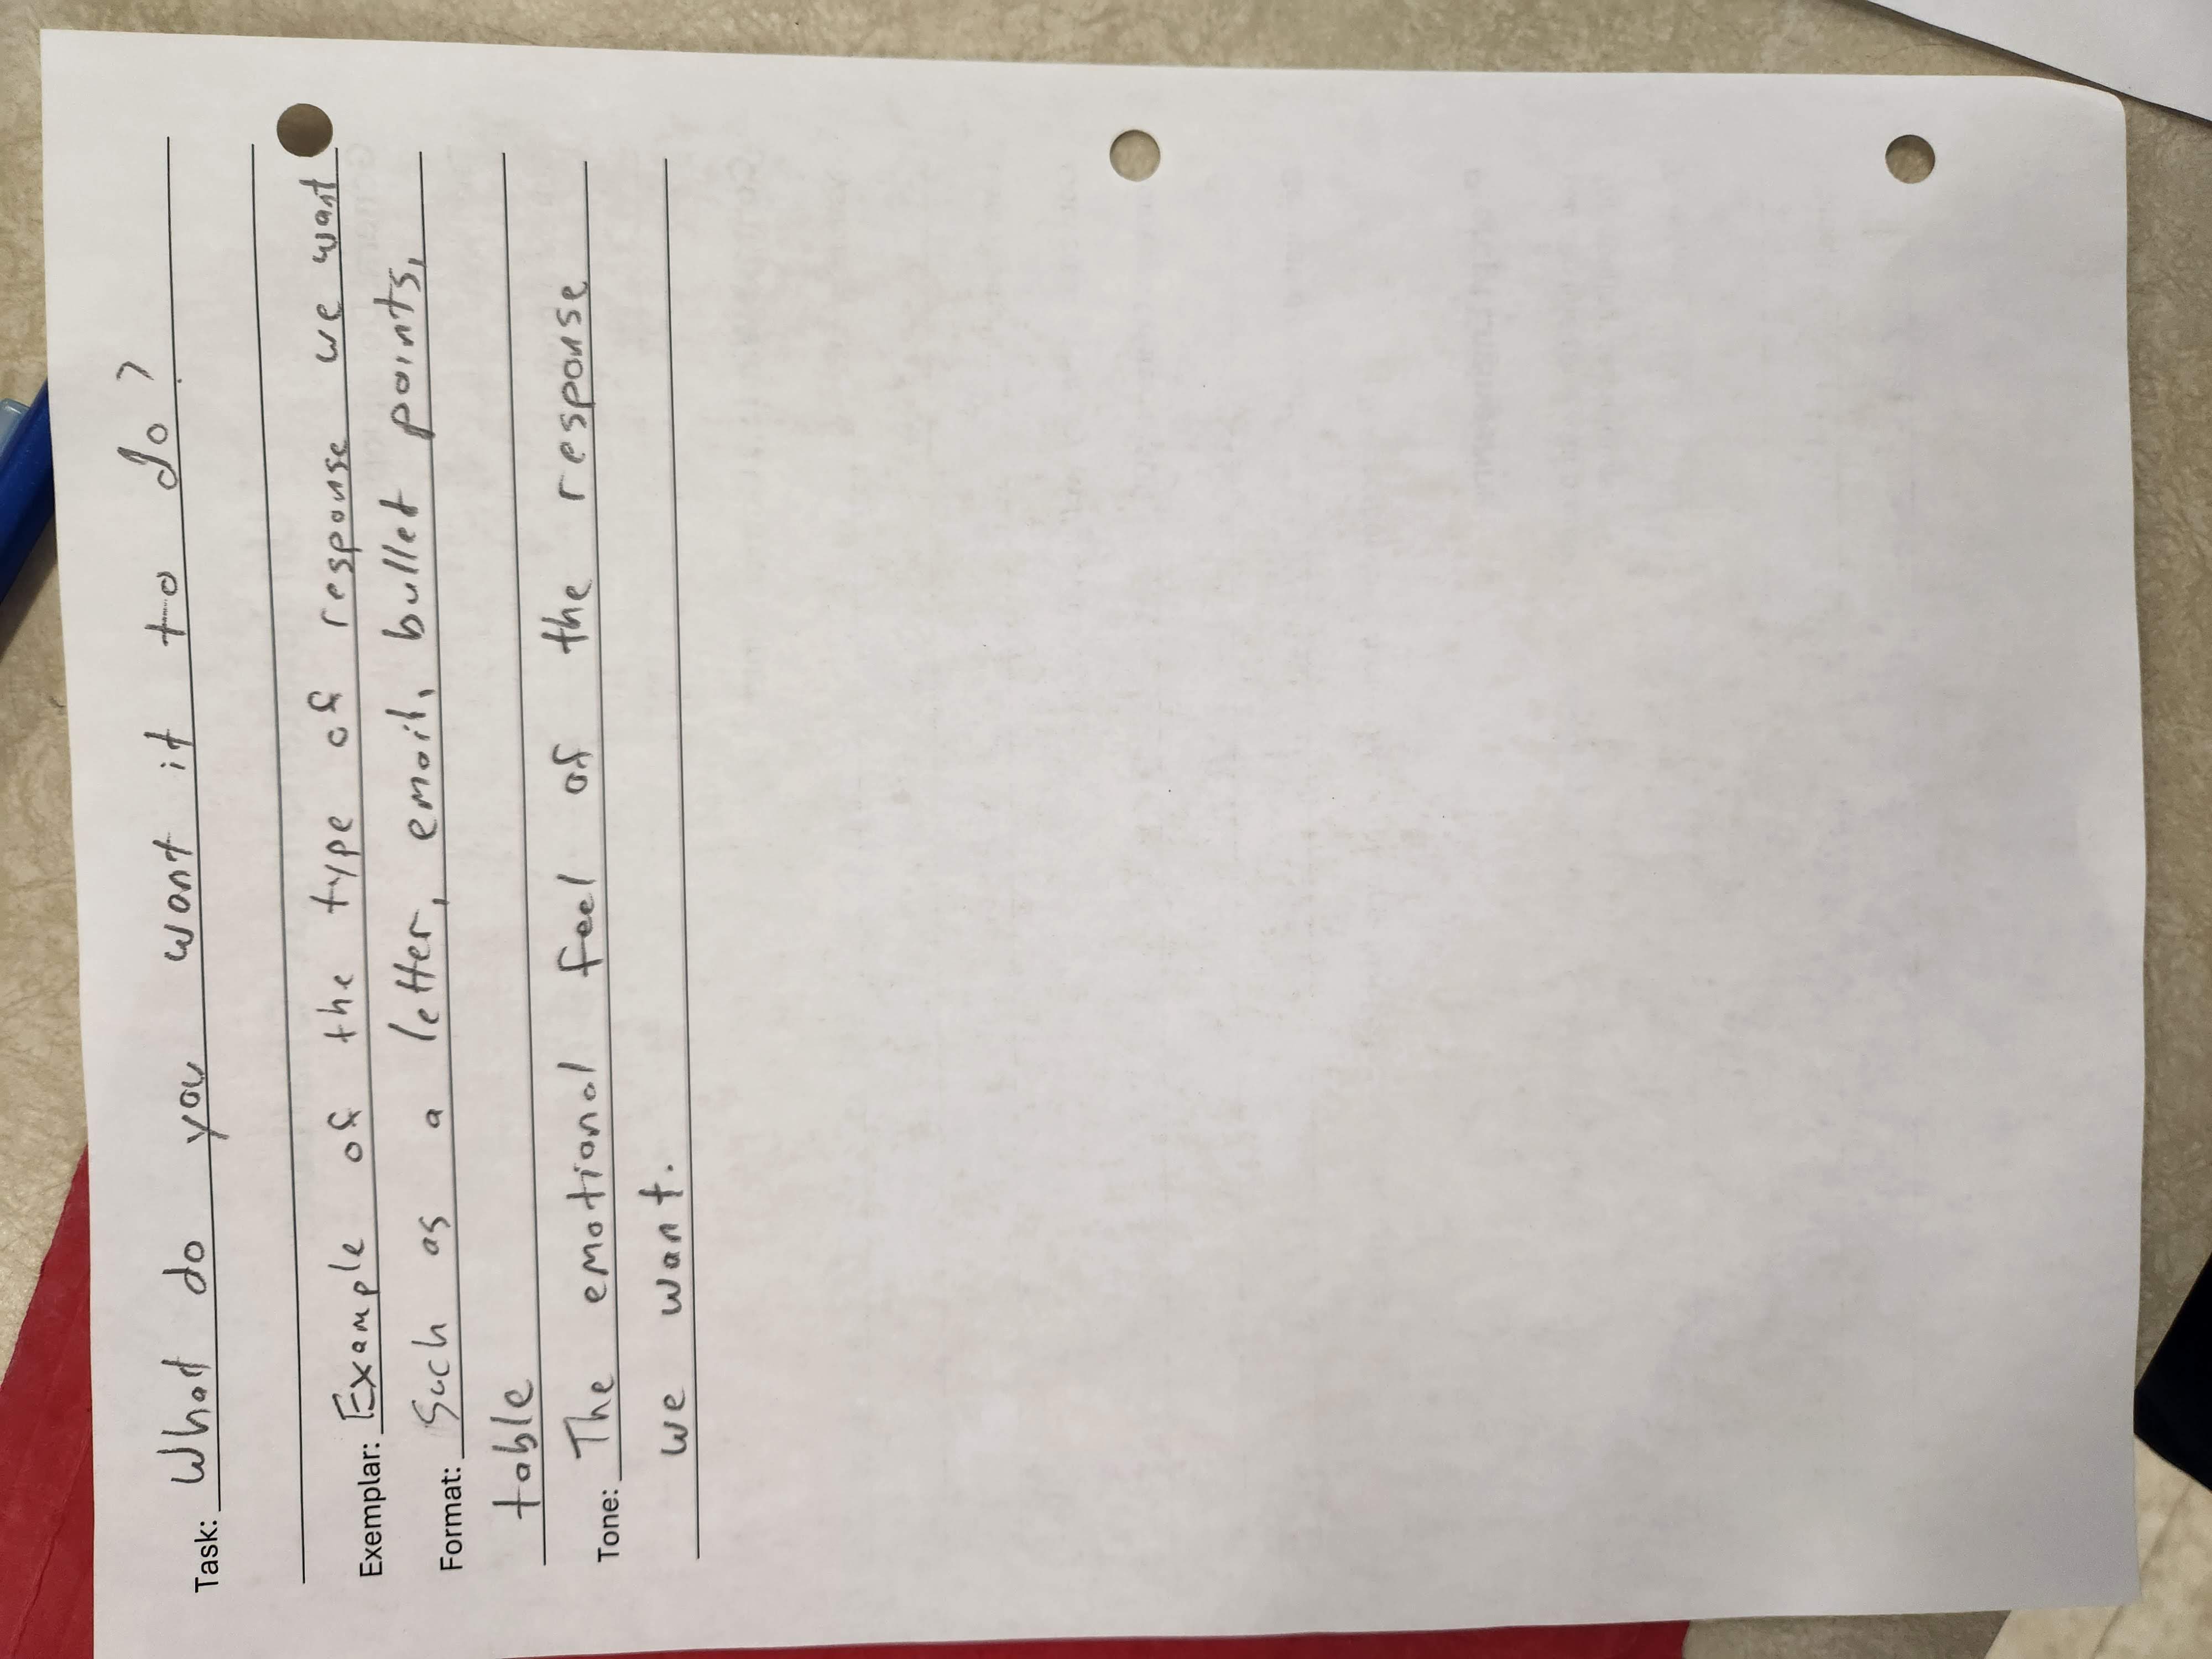 Task: What do you want it to do?
Exemplar: Example of the type of response we want
Format: Such as a letter, email, bullet points,
table
Tone: The emotional feel of the response
we want.